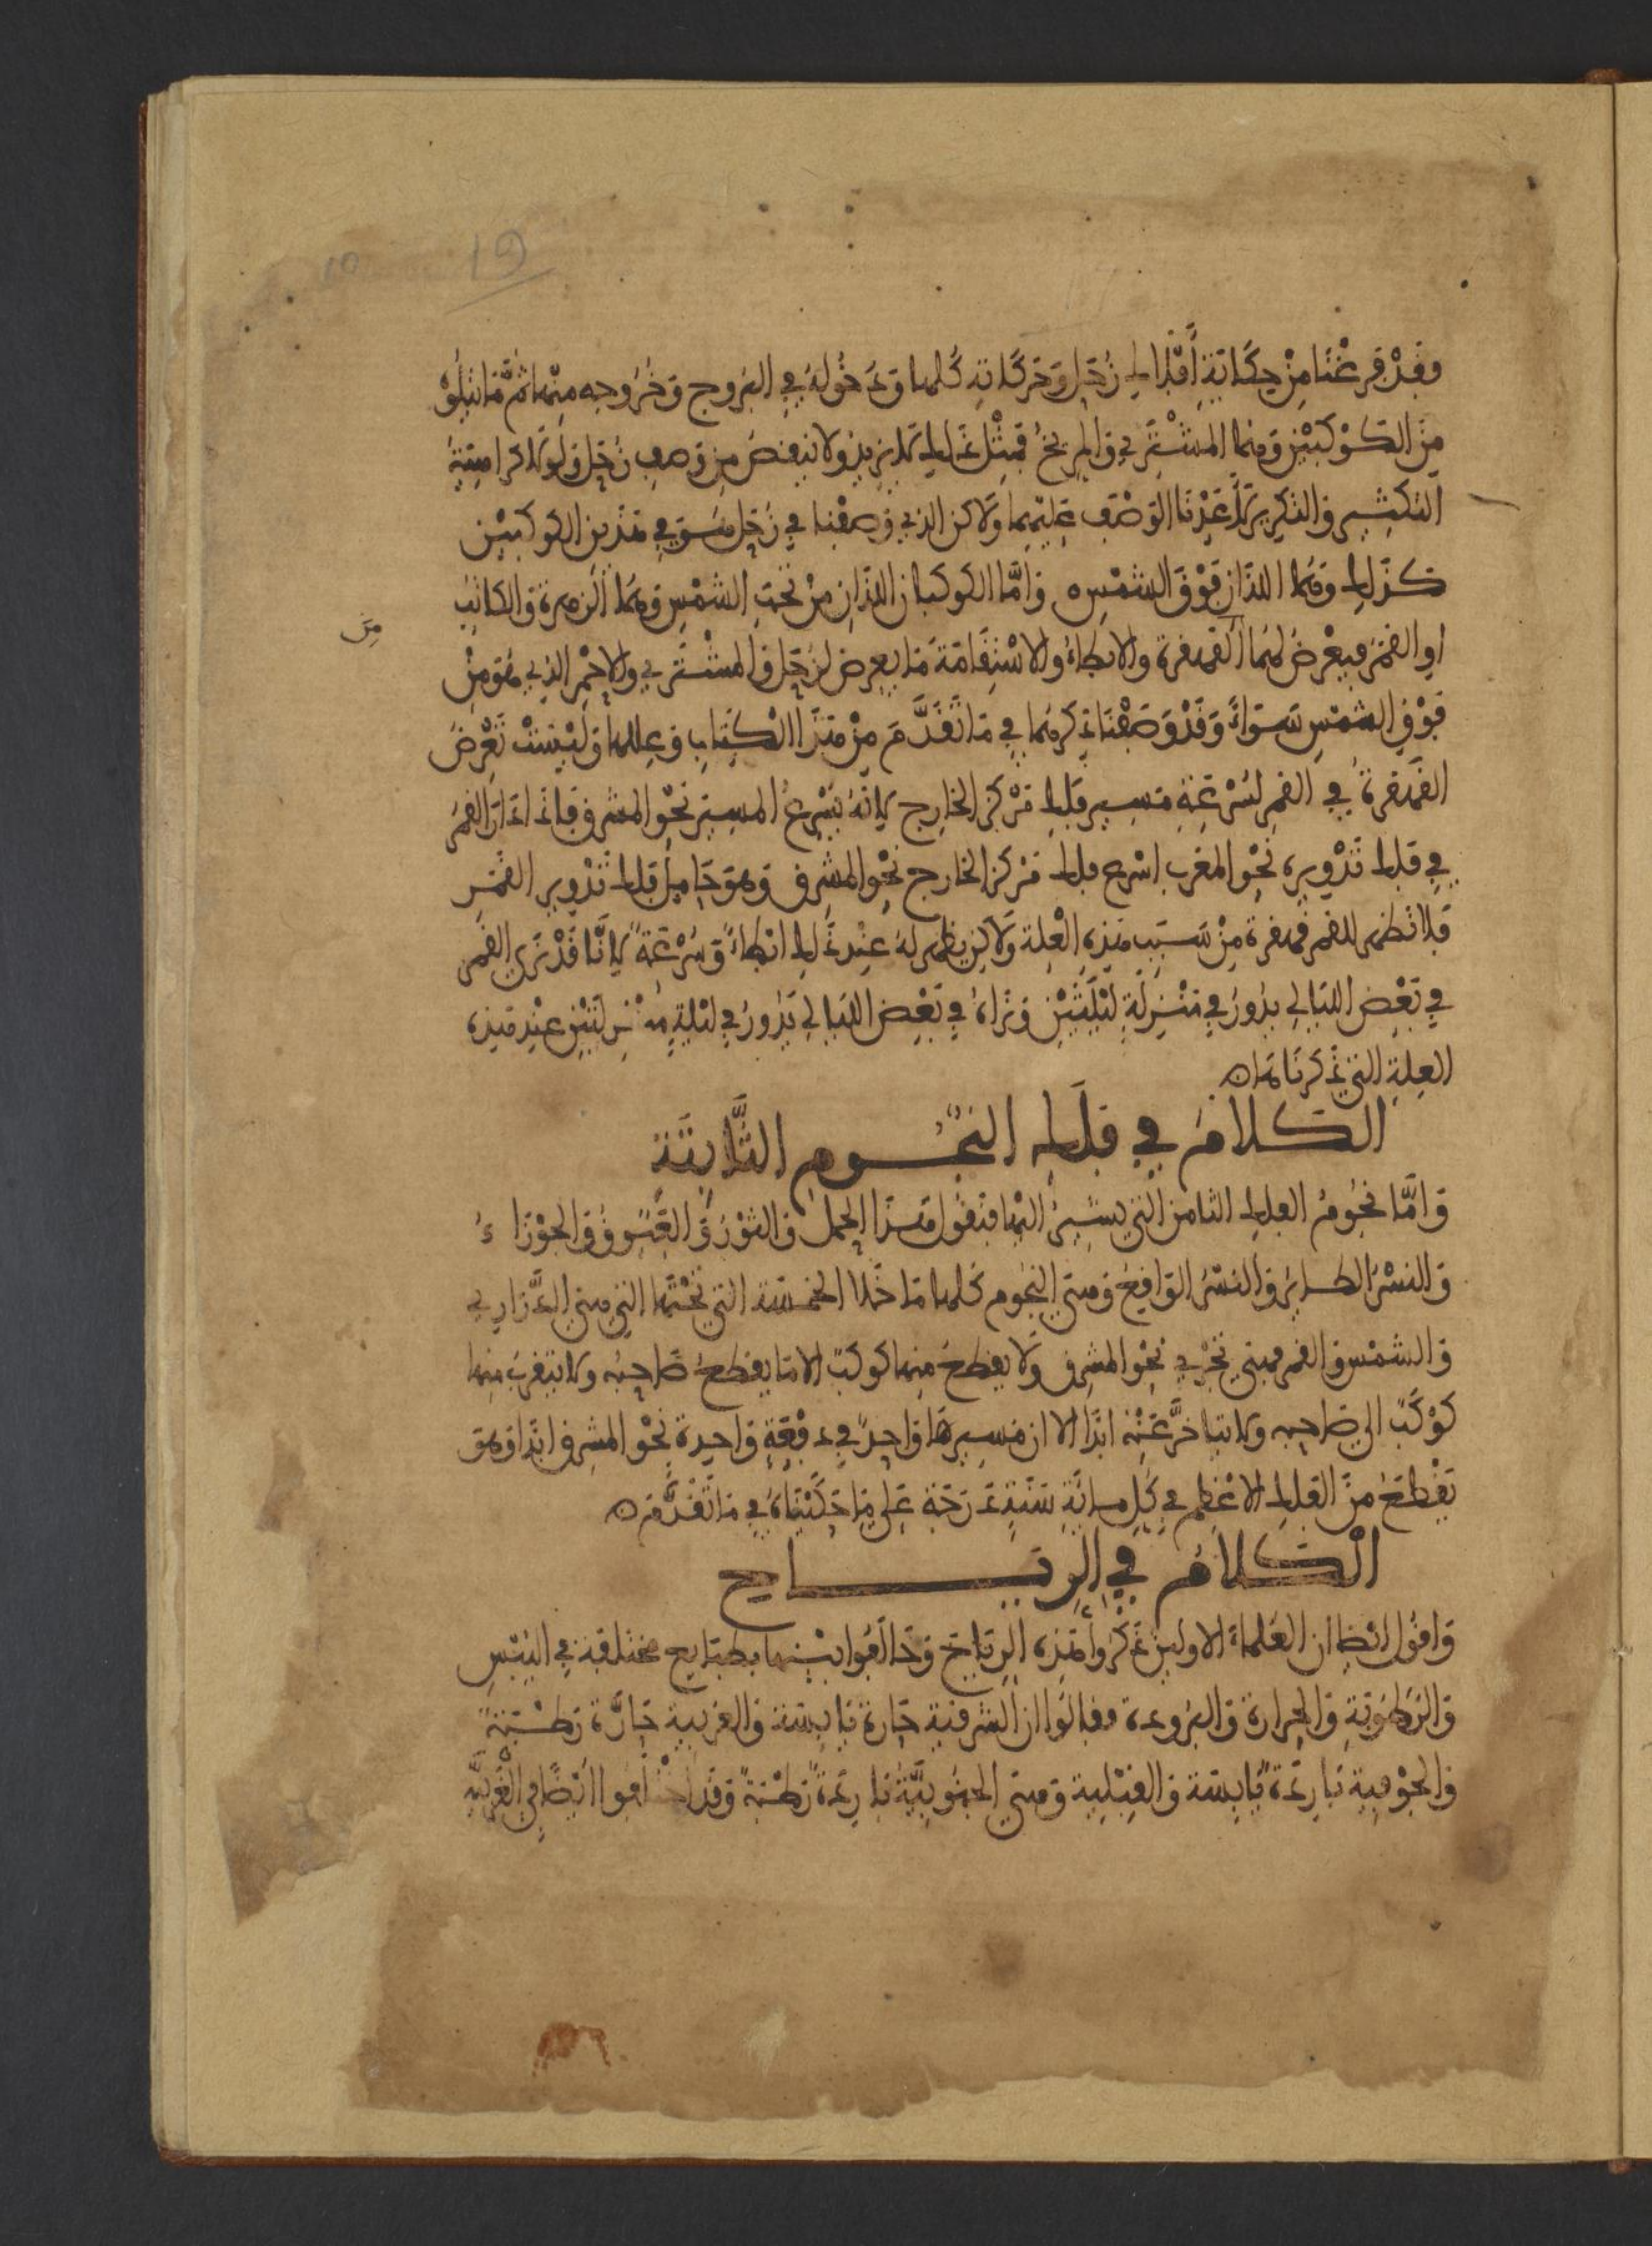 19
10
وقد فرغنا من حكاية أفلاك زحل وحركاته كلها ودخوله في البروج وخروجه منها ثم ما يتلوه
من الكوكبين وهما المشتري والمريخ فمثل ذلك لا يزيد ولا ينقص من وصف زحل ولولا كراهية
التكثير والتكرير لاعدنا الوصف عليهما ولاكن الذي وصفنا في زحل مستوي في هذين الكوكبين
كذلك وهما اللذان فوق الشمس ۝ واما الكوكبان اللذان من تحت الشمس وهما الزهرة والكاتب
من
او القمر فيعرض لهما القهقرة والابطاء والاستقامة ما يعرض لزحل والمشتري والاحمر الذي هو من
فوق الشمس سواء وقد وصفنا ذكرهما في ما تقدم من هذا الكتاب وعللها وليست تعرض
القهقرة في القمر لسرعة مسير فلك مركز الخارج لانه يسرع المسير نحو المشرق فاذا دار القمر
في فلك تدويره نحو المغرب اسرع فلك مركز الخارج نحو المشرق وهو حامل فلك تدوير القمر
فلا تظهر للقمر قهقرة من سبب هذه العلة ولاكن يظهر له عند ذلك ابطاء وسرعة لانا قد نرى القمر
في بعض الليالي يدور في منزلة ليلتين ونراه في بعض الليالي يدور في ليلة منزلتين عند هذه
العلة التي ذكرناها ۝
الكلام في فلك النجوم الثابتة
واما نجوم الفلك الثامن التي يشير اليها فنقول هذا الحمل والثور والعيوق والجوزاء
والنسر الطاير والنسر الواقع وهي النجوم كلها ما خلا الخمسة التي تحتها التي هي الدراري
والشمس والقمر فهي تجري نحو المشرق ولا يقطع منها كوكب الا ما يقطع صاحبه ولا يتقرب منها
كوكب الى صاحبه ولا يتاخر عنه ابدا الا ان مسيرها واحد في دفعة واحدة نحو المشرق ابدا وهو
يقطع من الفلك الاعظم في كل ماية سنة درجة على ما حكيناه في ما تقدم ۝
الكلام في الرياح
واقول ايضا ان العلماء الاولين ذكروا هذه الرياح وخالفوا بينها بطبايع مختلفة في اليبس
والرطوبة والحرارة والبرودة وقالوا ان الشرقية حارة يابسة والغربية حارة رطبة
والجوفية باردة يابسة والقبلية وهي الجنوبية باردة رطبة وقد ايضا في الغربية